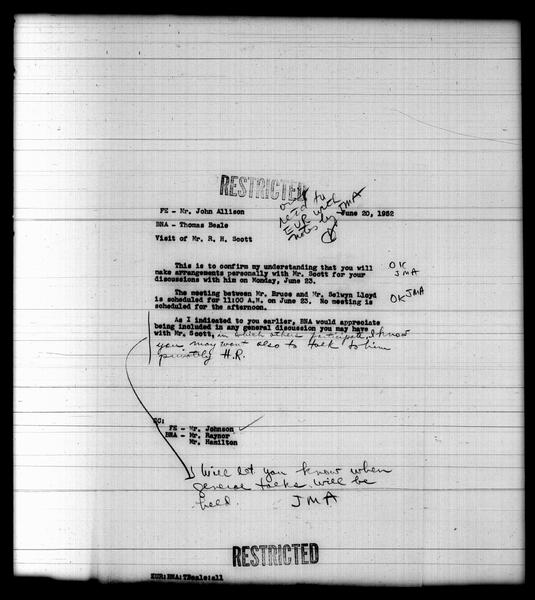 RESTRICTED
to
EUR with
notes by JMA
FE - Mr. John Allison
June 20, 1952
BNA - Thomas Beale
Visit of Mr. R. H. Scott
This is to confirm my understanding that you will
make arrangements personally with Mr. Scott for your
discussions with him on Monday, June 23.
OK
JMA
The meeting between Mr. Bruce and Mr. Selwyn Lloyd
is scheduled for 11:00 A.M. on June 23. No meeting is
scheduled for the afternoon.
OK JMA
As I indicated to you earlier, BNA would appreciate
being included in any general discussion you may have
with Mr. Scott, in which others participate. I know
you may want also to talk to him
privately H.R.
CC:
FE - Mr. Johnson
BNA - Mr. Raynor
Mr. Hamilton
I will let you know when
general talks will be
held. JMA
RESTRICTED
EUR:BNA:TBeale:all